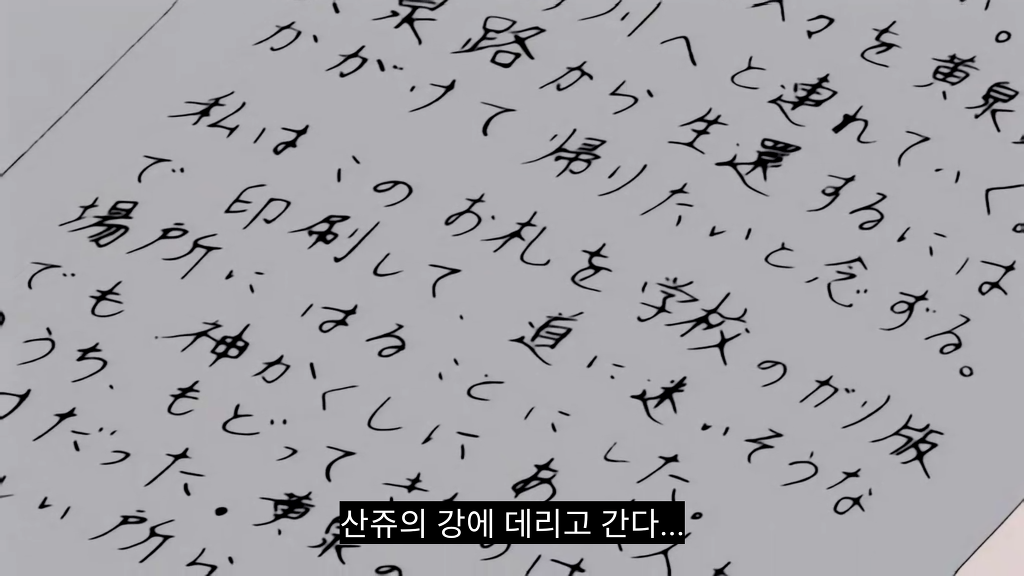 を黄泉
へと連れていく。
泉路から生還するには
かがけて帰りたいと念ずる。
私はこのお札を学校のガリ版
で印刷して、道に迷いそうな
場所にはることにした。
でも神かくしにあ
うち、もどってき
だった・黄泉の
い所か
산쥬의 강에 데리고 간다...